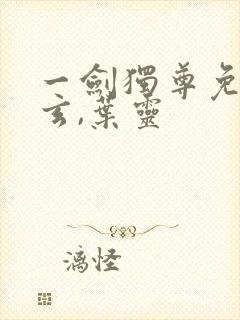 一劍獨尊免
玄,葉靈
漓怪